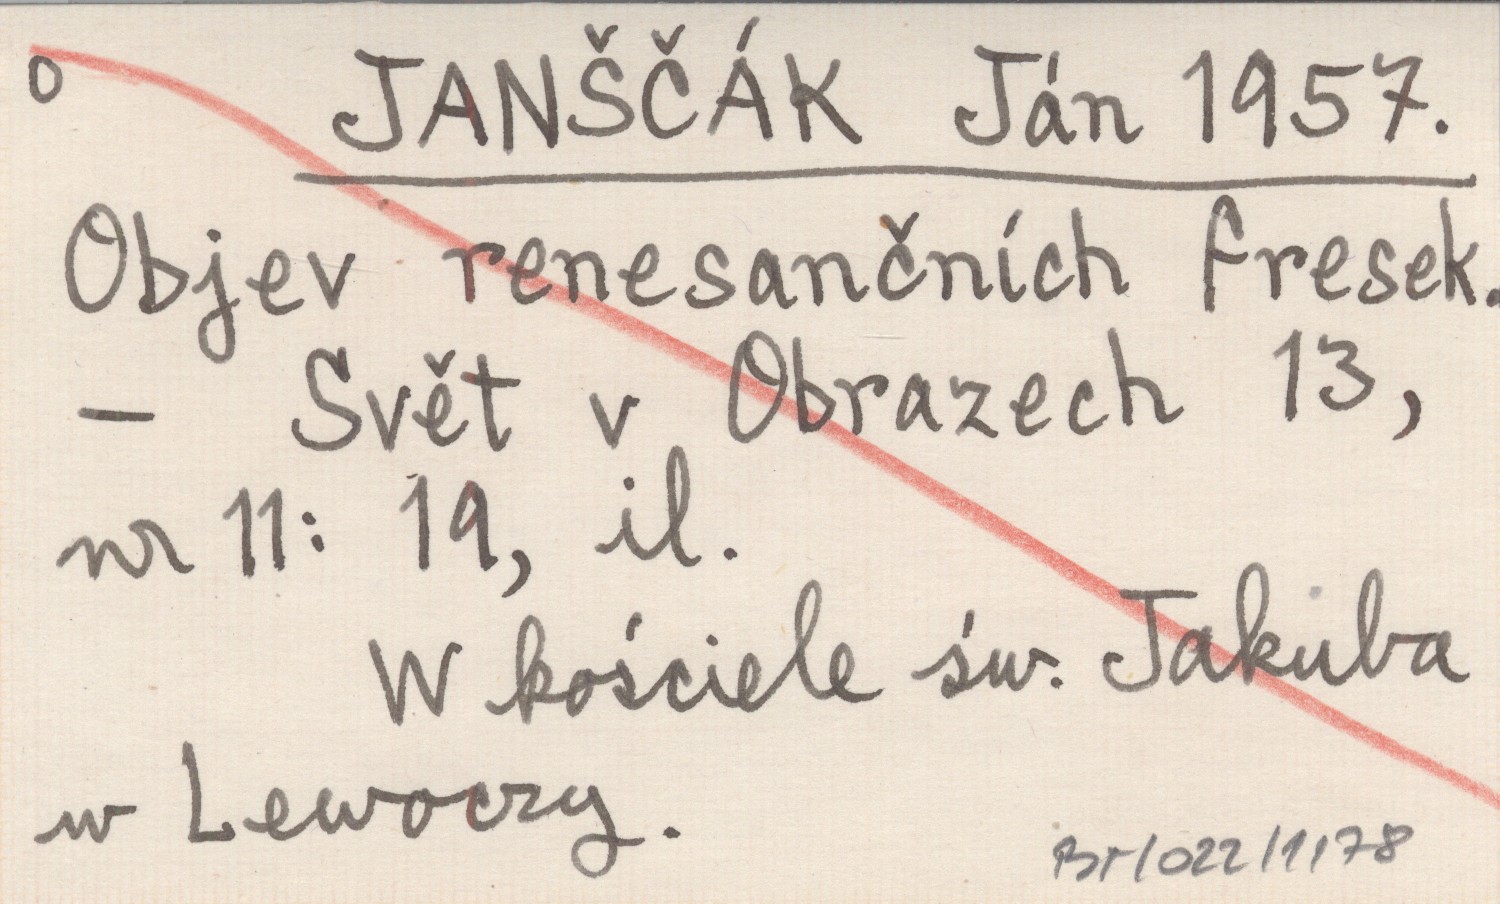 o JANŠČÁK Ján 1957.
Objev renesančních fresek.
— Svět v Obrazech 13,
nr 11: 19, il.
W kościele św. Jakuba
w Lewoczy.
Bt/022/1/78